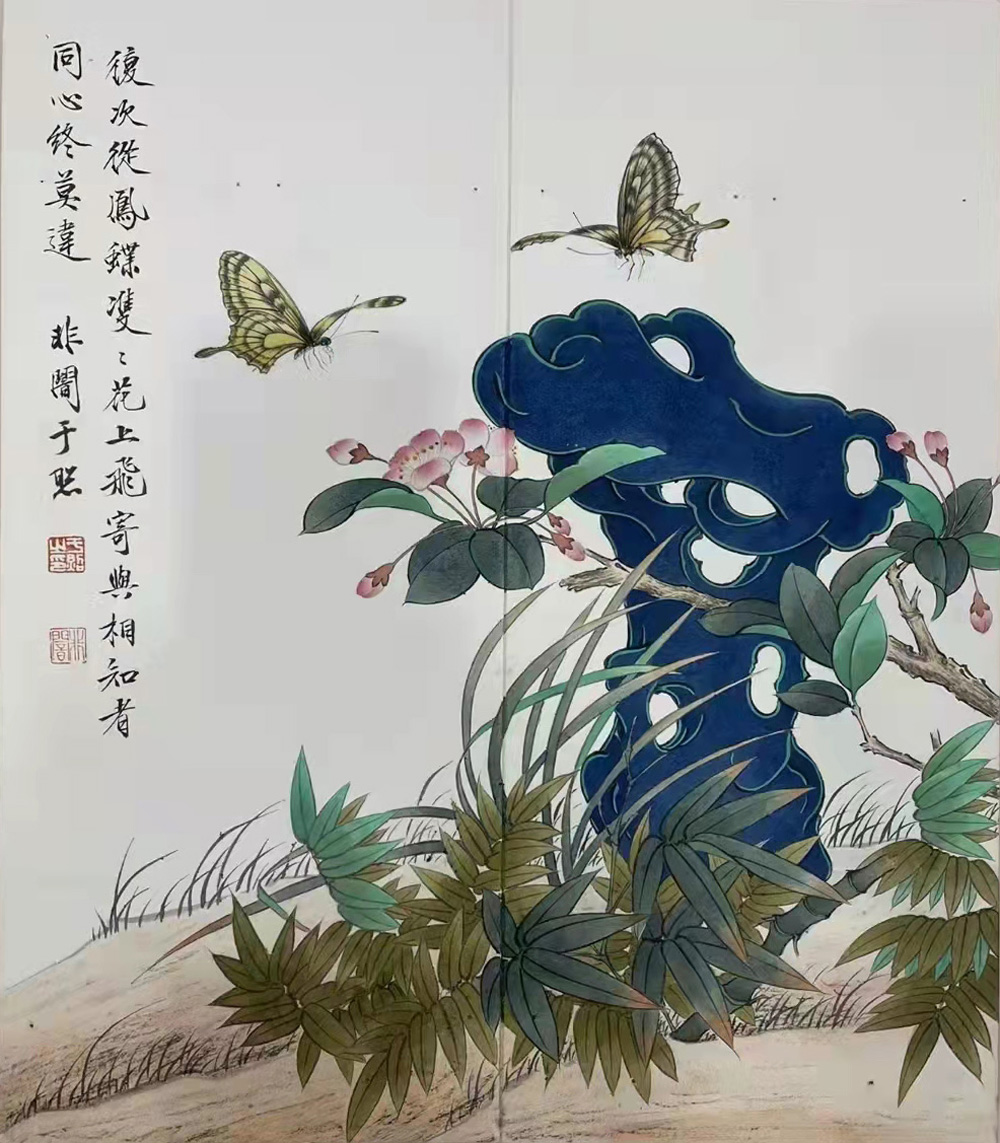 復次從鳳蝶雙〻花上飛寄與相知者
同心終莫違 非闇于照